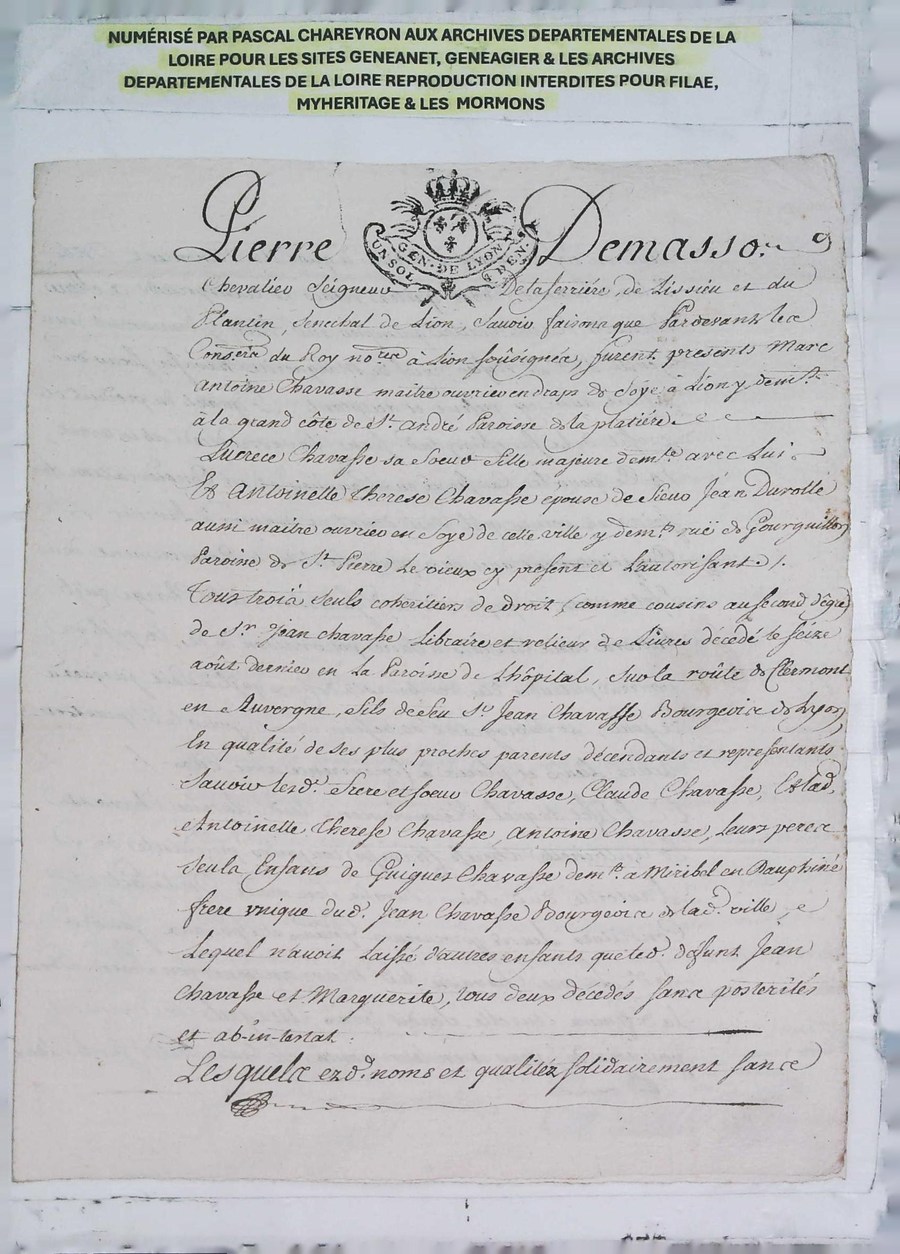 NUMÉRISÉ PAR PASCAL CHAREYRON AUX ARCHIVES DEPARTEMENTALES DE LA
LOIRE POUR LES SITES GENEANET, GENEAGIER & LES ARCHIVES
DEPARTEMENTALES DE LA LOIRE REPRODUCTION INTERDITES POUR FILAE,
MYHERITAGE & LES MORMONS
Pierre Demasso
GEN. DE LYON
UN SOL 8 DEN.
Chevalier Seigneur Delaferriére, de Lissieu et du
Plantin, Senechal de Lion, Savoir faisons que Pardevant les
Cons.ers du Roy no.res à Lion soûsignés, furent presents Marc
Antoine Chavasse maitre ouvrier en draps de Soye à Lion y dem.t
à la grand côte de S.t André Paroisse de la platiére
Lucrece Chavasse sa Soeur fille majeure dem.te avec Lui
Et Antoinette Therese Chavasse epouse de Sieur Jean Durolle
aussi maitre ouvrier en Soye de cette ville y dem.t ruë de Gourguillon
Paroisse de S.t Pierre Le vieux cy present et L'autorisant
Tous trois seuls coheritiers de droit (comme cousins au second dégré)
de S.r Jean Chavasse Libraire et relieur de Livres décédé le seize
août dernier en La Paroisse de Lhôpital, sur la roûte de Clermont
en Auvergne, fils de feu S.r Jean Chavasse Bourgeois de Lyon,
En qualité de ses plus proches parents décendants et representants
Savoir lesd. frere et soeur Chavasse, Claude Chavasse, Et lad.
Antoinette Therese Chavasse, Antoine Chavasse, leurs peres
seuls Enfans de Guigues Chavasse dem.t a Miribel en Dauphiné
frere unique dud. Jean Chavasse Bourgeois de lad. ville,
Lequel n'avoit Laissé d'autres enfants que led. défunt Jean
Chavasse et Marguerite, tous deux décédés sans posterités
et ab-in-testat
Lesquels ezd. noms et qualités solidairement sans